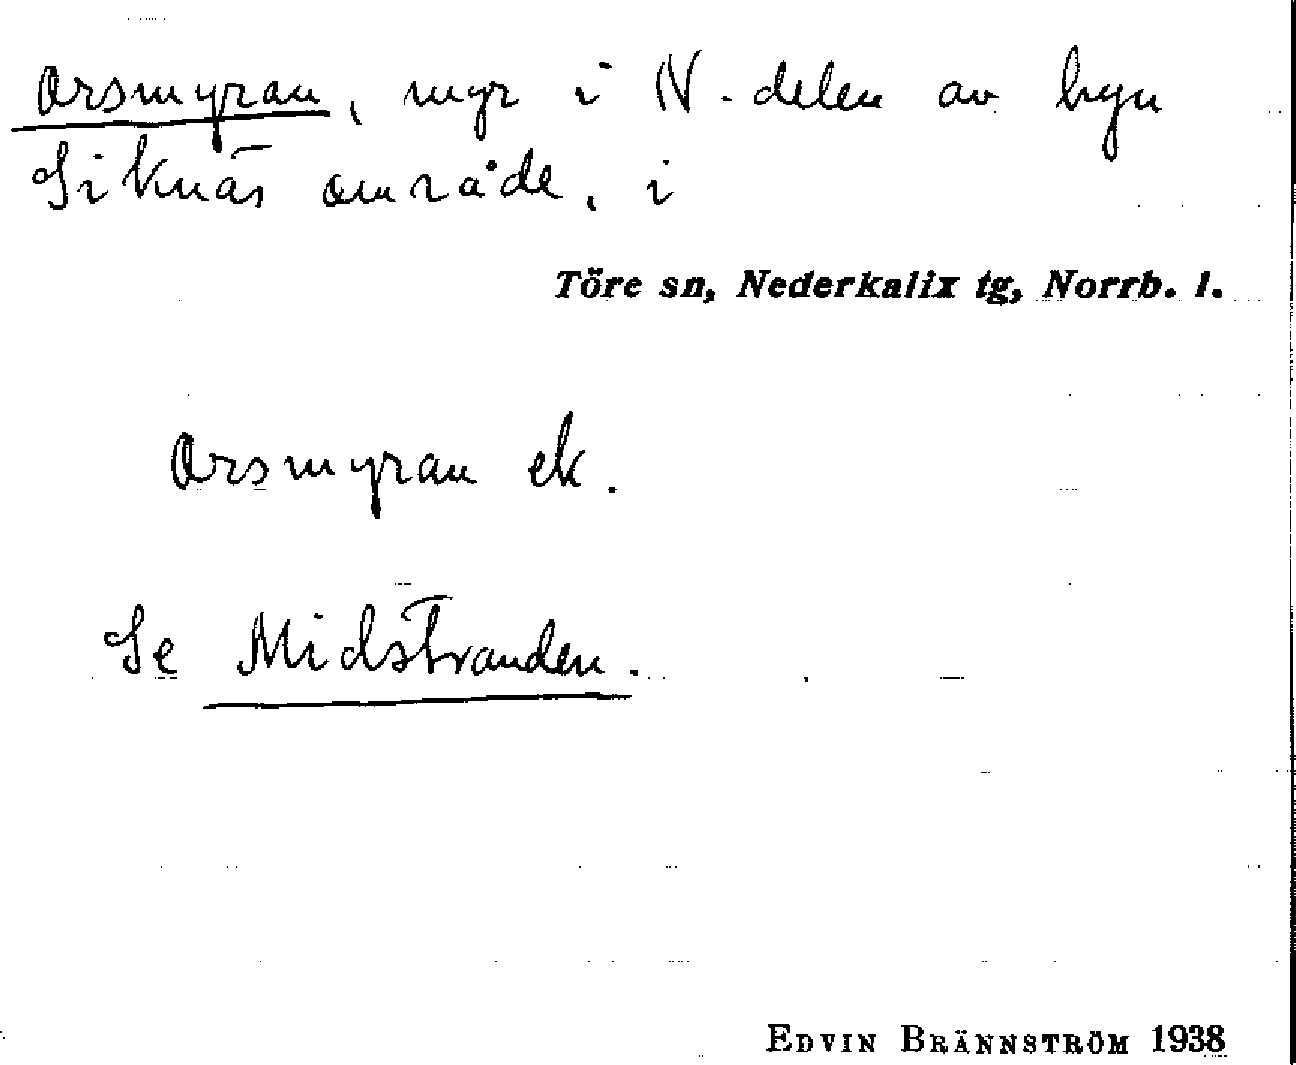 Orsmyran, myr i N-delen av byn
Siknäs område, i
Töre sn, Nederkalix tg, Norrb. l.
Orsmyran ek.
Se Midstranden.
EDVIN BRÄNNSTRÖM 1938